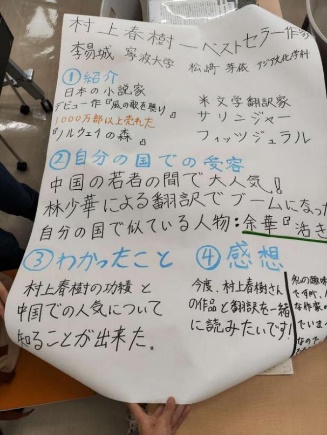 村上春樹ーベストセラー作家
李易城 寧波大学 松崎芽依 アジア文化学科
①紹介
日本の小説家
デビュー作『風の歌を聴け』
1000万部以上売れた
『ノルウェイの森』
米文学翻訳家
サリンジャー
フィッツジェラル
②自分の国での受容
中国の若者の間で大人気!!
林少華による翻訳でブームになった
自分の国で似ている人物:余華『活き
③わかったこと
村上春樹の功績と
中国での人気について
知ることが出来た。
④感想
今度、村上春樹さん
の作品と翻訳を一緒
に読みたいです!
私の趣味
ですが、
な作家の
でいま
なので